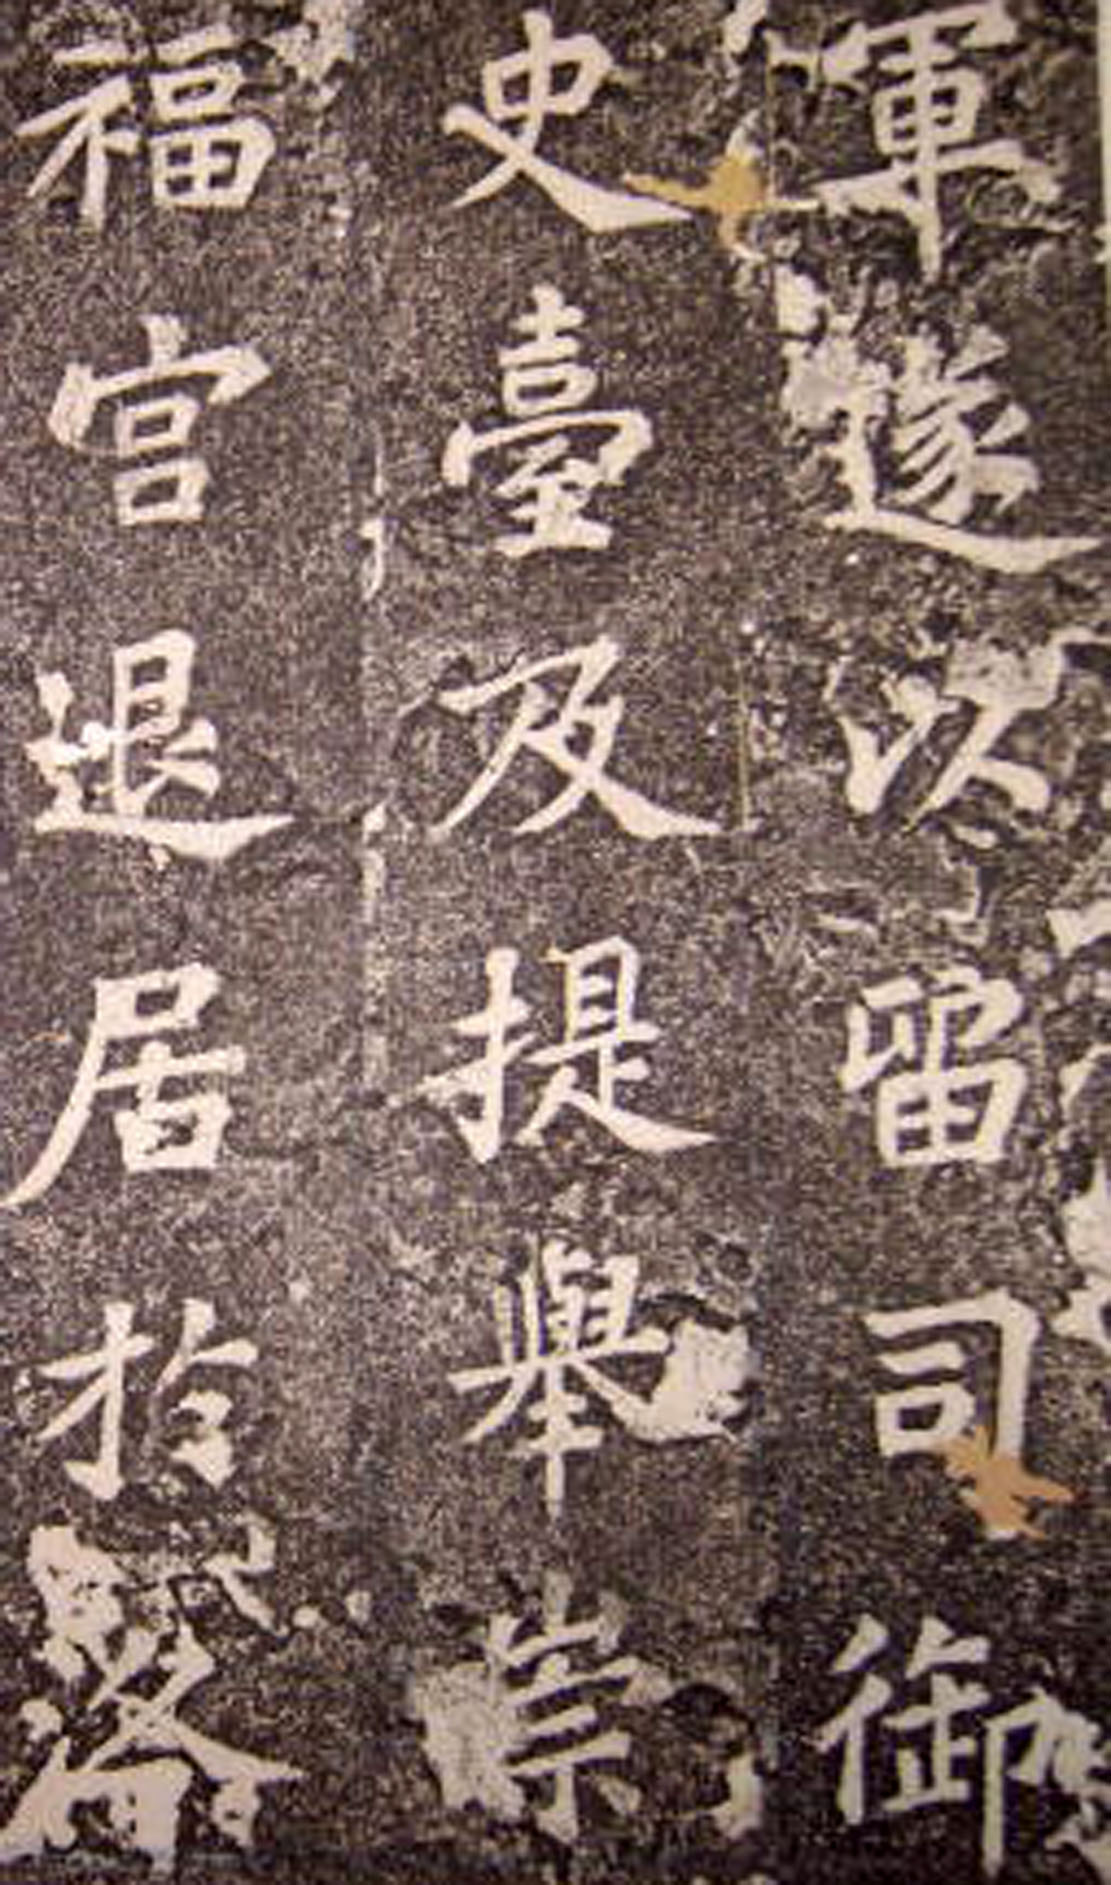 軍遂以留司御
史臺及提舉崇
福宫退居扵洛